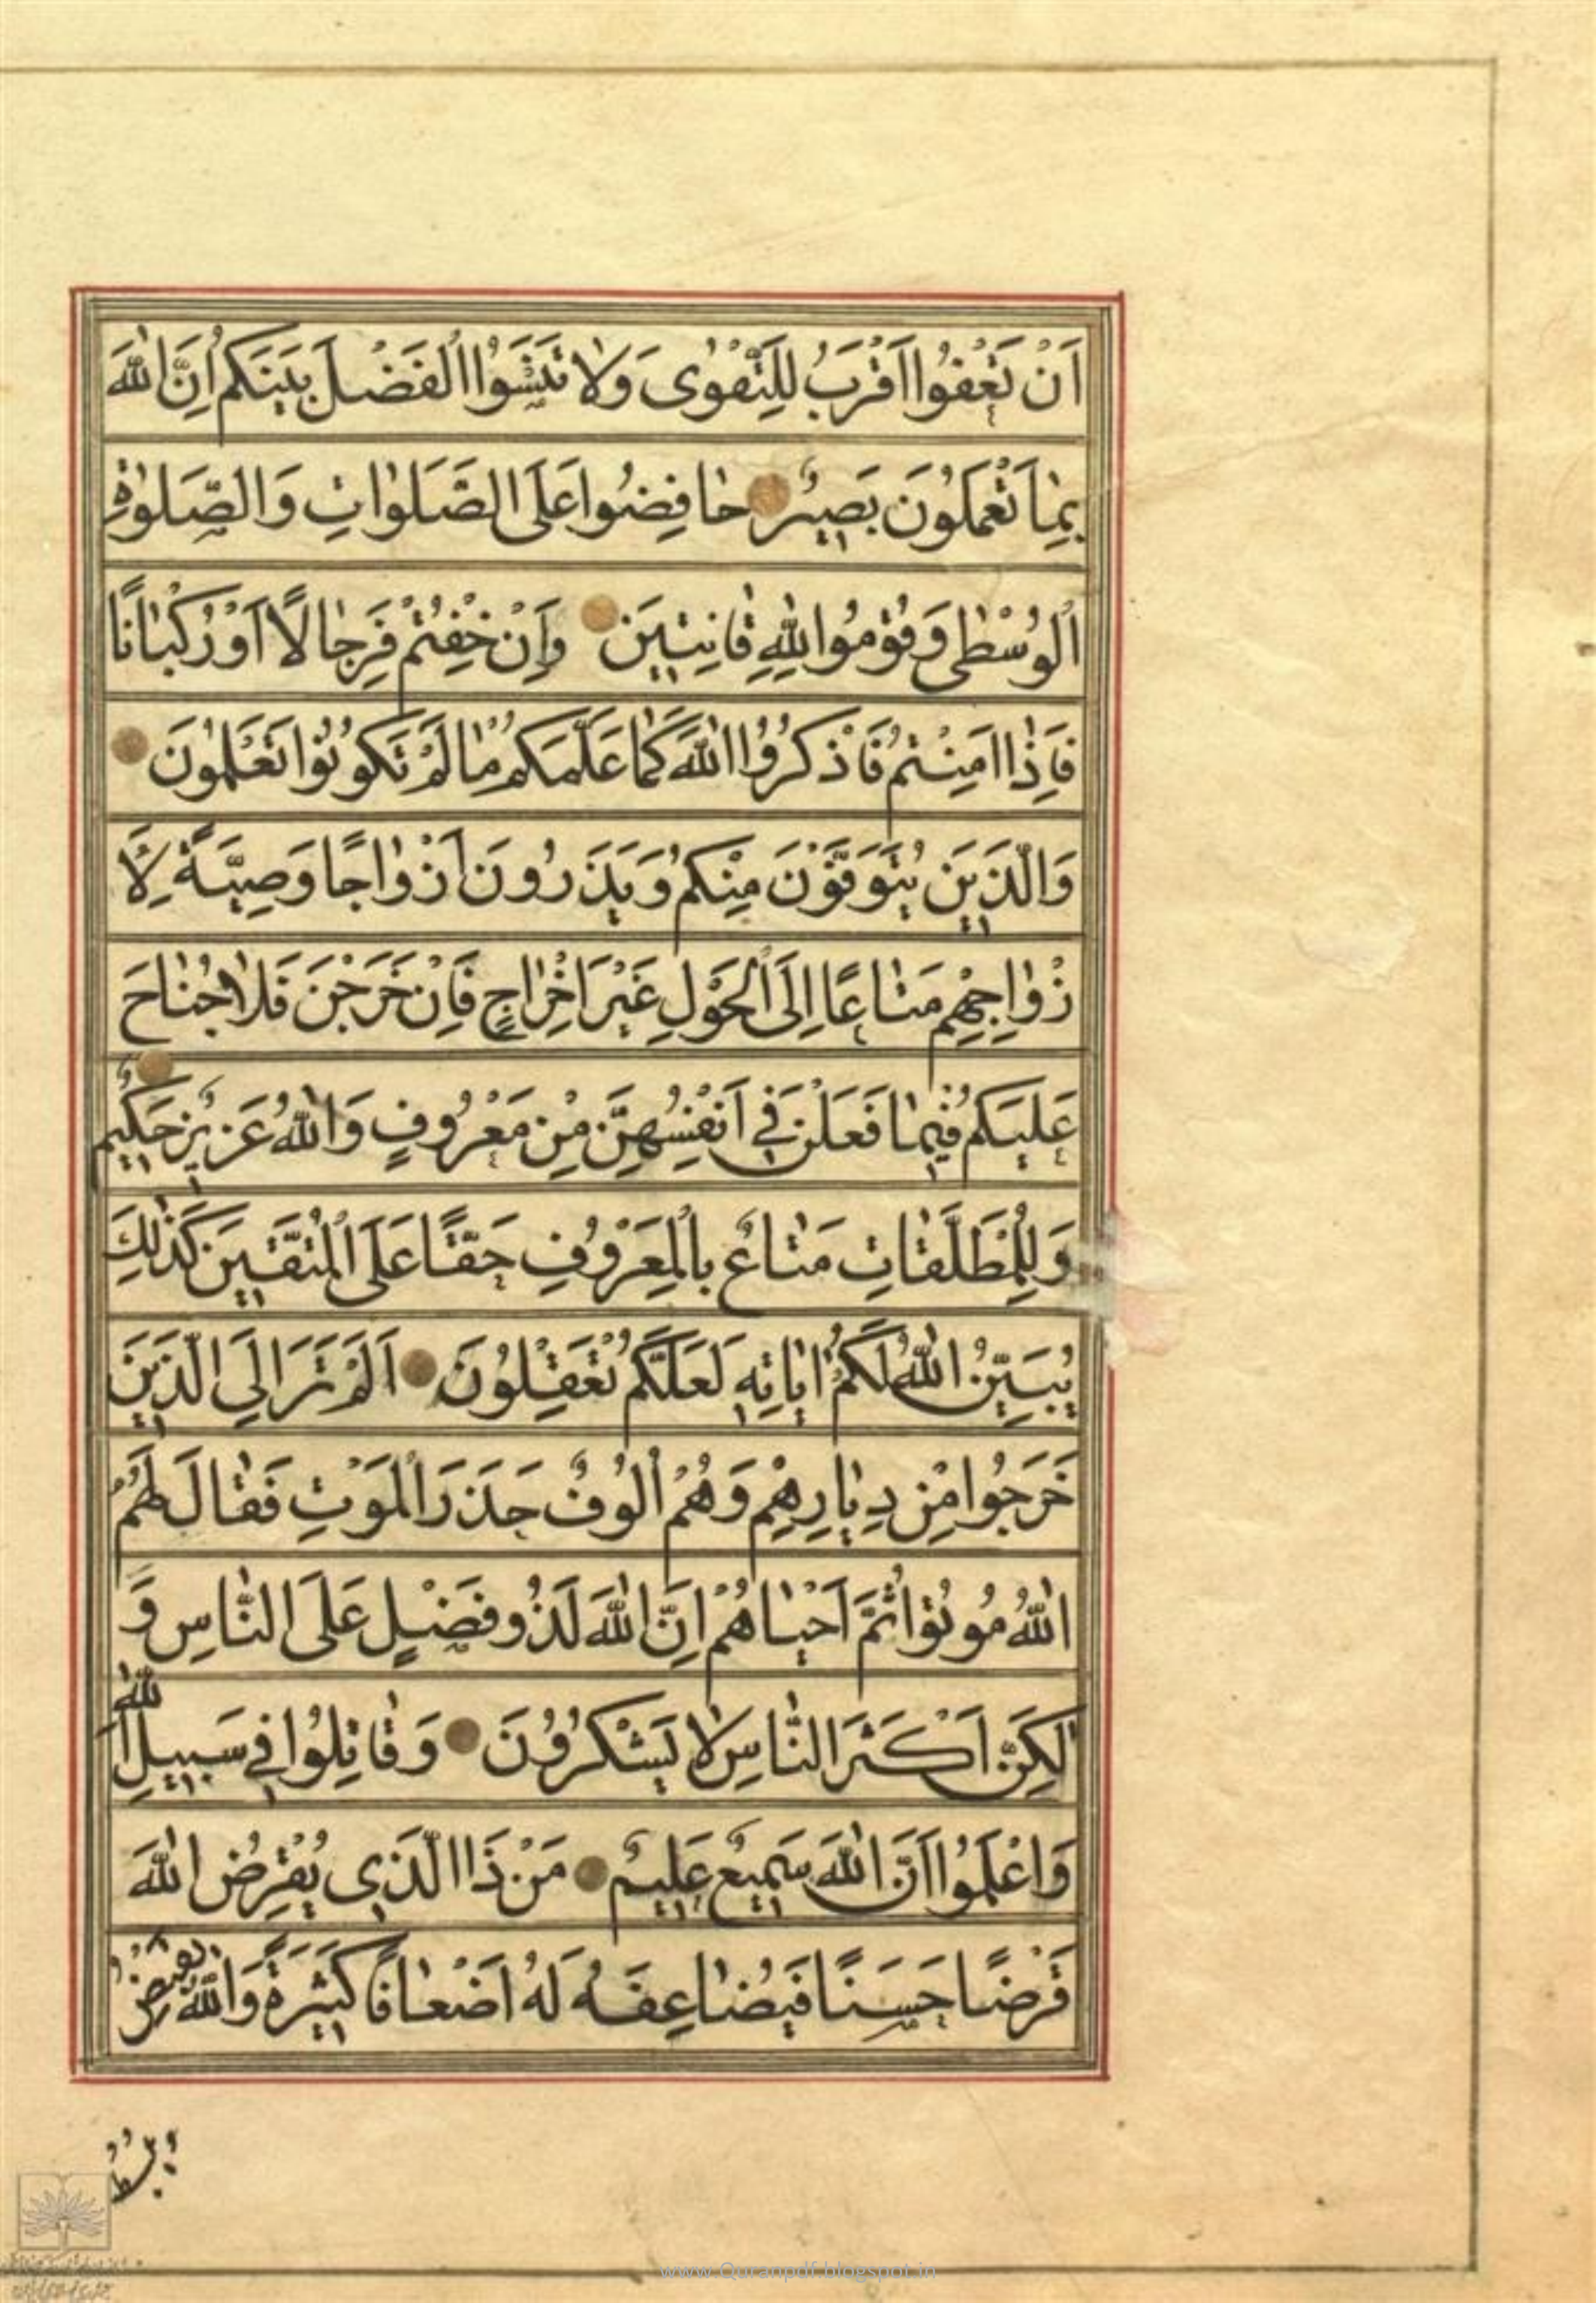 اَنْ تَعْفُوا اَقْرَبُ لِلتَّقْوٰى وَلا تَنْسَوُا الْفَضْلَ بَيْنَكُمْ اِنَّ اللّٰهَ
بِمٰا تَعْمَلُونَ بَصِيرٌ حٰافِضُوا عَلَى الصَّلَوٰاتِ وَالصَّلوٰةِ
الْوُسْطٰى وَقُومُوا لِلّٰهِ قٰانِتِينَ وَاِنْ خِفْتُمْ فَرِجٰالًا اَوْ رُكْبٰانًا
فَاِذٰا اَمِنْتُمْ فَاذْكُرُوا اللّٰهَ كَمٰا عَلَّمَكُمْ مٰا لَمْ تَكُونُوا تَعْلَمُونَ
وَالَّذِينَ يُتَوَفَّوْنَ مِنْكُمْ وَيَذَرُونَ اَزْوٰاجًا وَصِيَّةً لِاَ
زْوٰاجِهِمْ مَتٰاعًا اِلَى الْحَوْلِ غَيْرَ اِخْرٰاجٍ فَاِنْ خَرَجْنَ فَلاٰ جُنٰاحَ
عَلَيْكُمْ فِيمٰا فَعَلْنَ فِي اَنْفُسِهِنَّ مِنْ مَعْرُوفٍ وَاللّٰهُ عَزِيزٌ حَكِيمٌ
وَلِلْمُطَلَّقٰاتِ مَتٰاعٌ بِالْمَعْرُوفِ حَقًّا عَلَى الْمُتَّقِينَ كَذٰلِكَ
يُبَيِّنُ اللّٰهُ لَكُمْ اٰيٰاتِهِ لَعَلَّكُمْ تَعْقِلُونَ اَلَمْ تَرَ اِلَى الَّذِينَ
خَرَجُوا مِنْ دِيٰارِهِمْ وَهُمْ اُلُوفٌ حَذَرَ الْمَوْتِ فَقٰالَ لَهُمُ
اللّٰهُ مُوتُوا ثُمَّ اَحْيٰاهُمْ اِنَّ اللّٰهَ لَذُو فَضْلٍ عَلَى النّٰاسِ وَ
لٰكِنَّ اَكْثَرَ النّٰاسِ لاٰ يَشْكُرُونَ وَقٰاتِلُوا فِي سَبِيلِ اللّٰهِ
وَاعْلَمُوا اَنَّ اللّٰهَ سَمِيعٌ عَلِيمٌ مَنْ ذَا الَّذِي يُقْرِضُ اللّٰهَ
قَرْضًا حَسَنًا فَيُضٰاعِفَهُ لَهُ اَضْعٰافًا كَثِيرَةً وَاللّٰهُ يَقْبِضُ
www.Quranpdf.blogspot.in